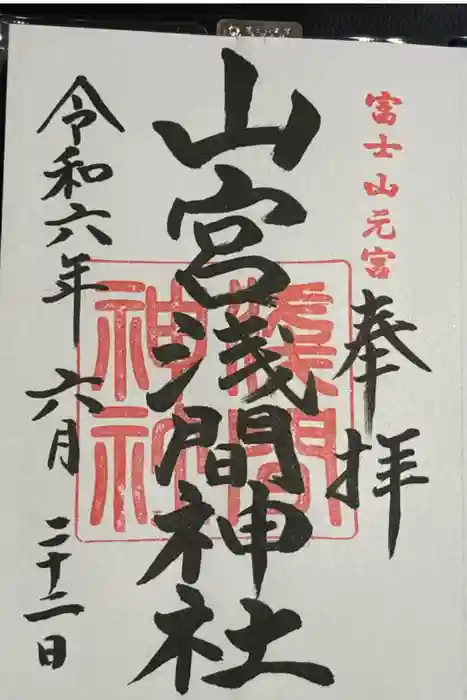 富士山元宮
奉拝
山宮浅間神社
浅間
神社
令和六年 六月 二十二日